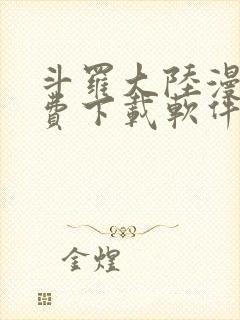 斗羅大陸漫
費下載軟件
金煌